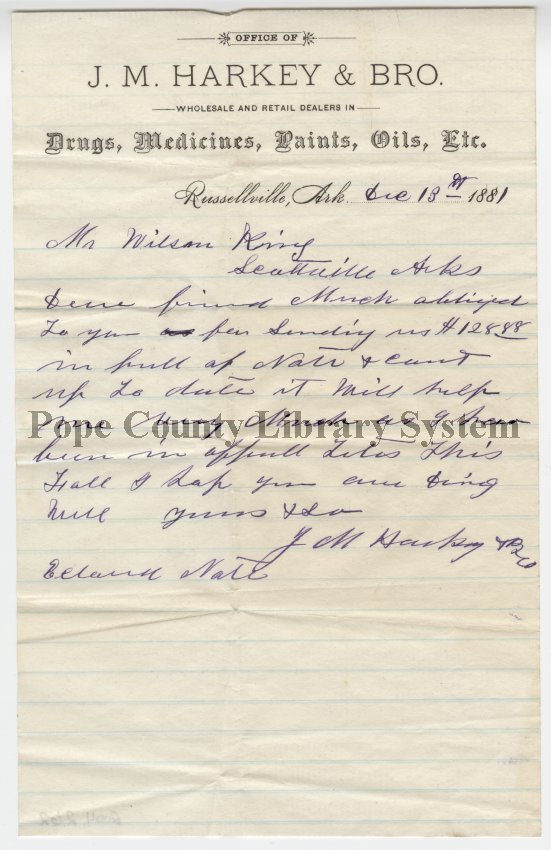 OFFICE OF
J. M. HARKEY & BRO.
WHOLESALE AND RETAIL DEALERS IN
Drugs, Medicines, Paints, Oils, Etc.
Russellville, Ark. Dec 13th 1881
Mr Wilson King
Scottville Arks
Dear friend Much obliged
To you for Sending us $128.88
in full of Note &
up To date it Will help
me Very Much as I have
Pope County Library System
been in This
Fall I hop you are Doing
Well yours &
J M Harkey & Bro
Note